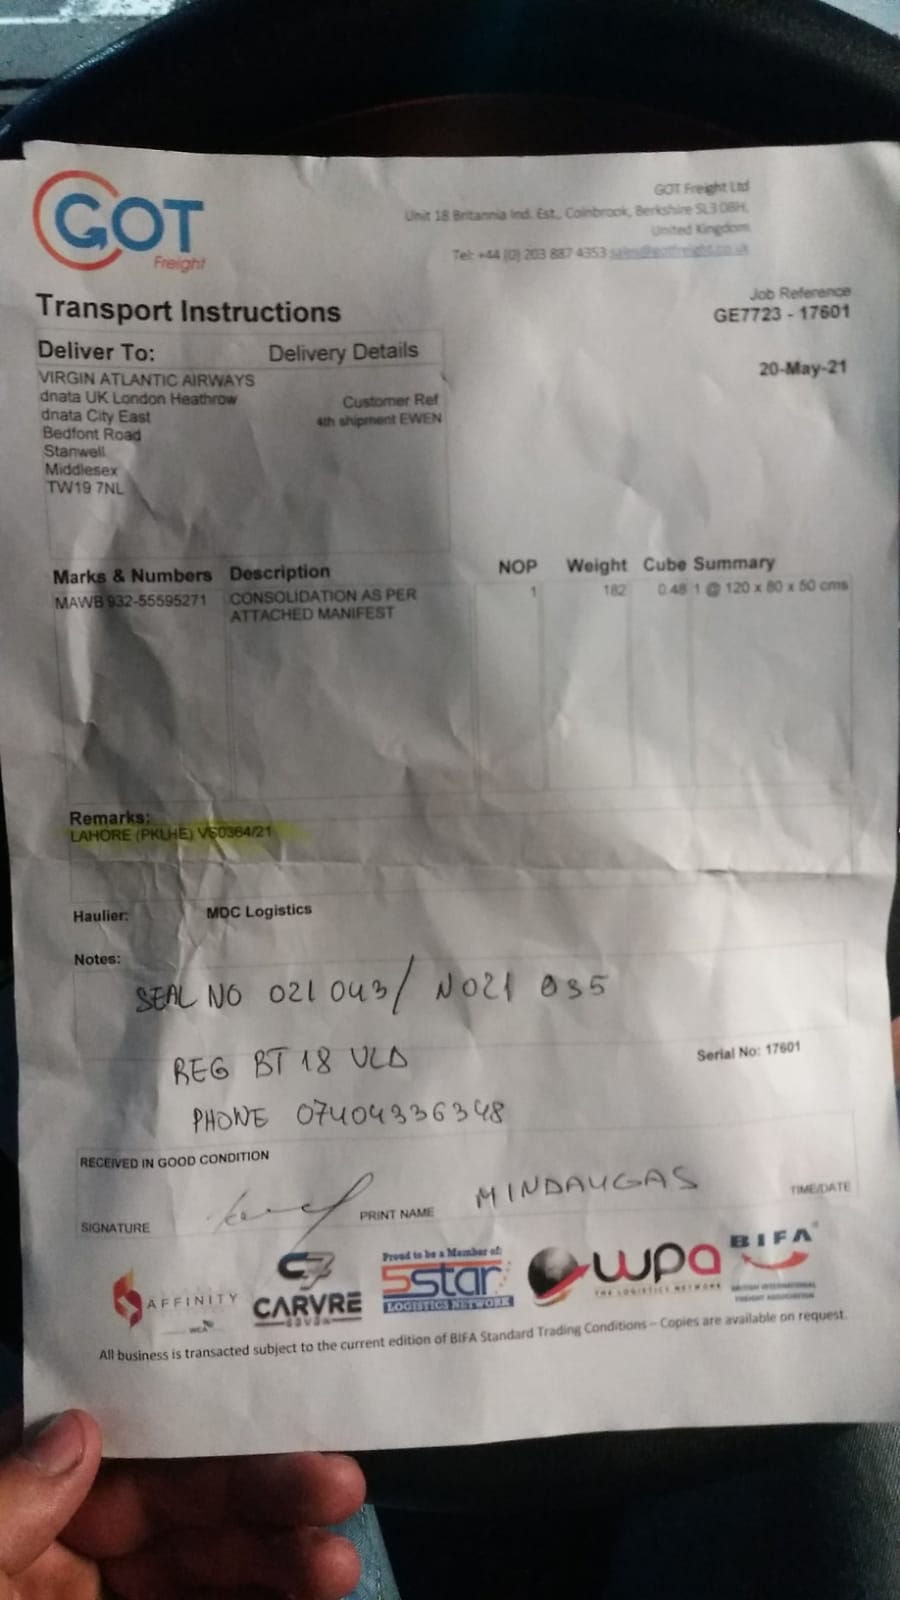 GOT
Freight
GOT Freight Ltd
Unit 18 Britannia Ind. Est., Colnbrook, Berkshire SL3 0BH,
United Kingdom
Tel: +44 (0) 203 887 4353 sales@gotfreight.co.uk
Transport Instructions
Job Reference
GE7723 - 17601
20-May-21
Deliver To:
Delivery Details
VIRGIN ATLANTIC AIRWAYS
dnata UK London Heathrow
dnata City East
Bedfont Road
Stanwell
Middlesex
TW19 7NL
Customer Ref
4th shipment EWEN
Marks & Numbers Description NOP Weight Cube Summary
MAWB 932-55595271 CONSOLIDATION AS PER 1 182 0.48 1 @ 120 x 80 x 50 cms
ATTACHED MANIFEST
Remarks:
LAHORE (PKLHE) VS0364/21
Haulier: MDC Logistics
Notes:
SEAL NO 021 043 / N021 035
REG BT 18 VLD
Serial No: 17601
PHONE 07404336348
RECEIVED IN GOOD CONDITION
SIGNATURE PRINT NAME MINDAUGAS TIME/DATE
AFFINITY
WCA
C7
CARVRE
SEVEN
Proud to be a Member of:
5star
LOGISTICS NETWORK
wpa
THE LOGISTICS NETWORK
BIFA
BRITISH INTERNATIONAL
FREIGHT ASSOCIATION
All business is transacted subject to the current edition of BIFA Standard Trading Conditions – Copies are available on request.